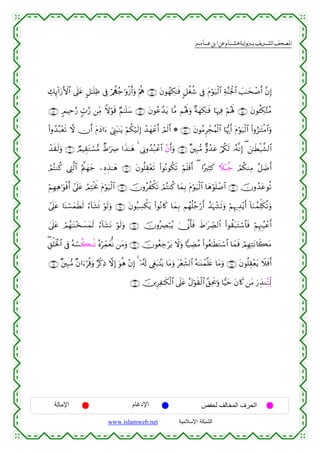 المصحف الشريف برواية هشام عن ابن عامر
إِنَّ أَصْحَٰبَ ٱلْجَنَّةِ ٱلْيَوْمَ فِى شُغُلٍ فَٰكِهُونَ هُمْ وَأَزْوَٰجُهُمْ فِى ظِلَٰلٍ عَلَى ٱلْأَرَآئِكِ
مُتَّكِـُٔونَ لَهُمْ فِيهَا فَٰكِهَةٌ وَلَهُم مَّا يَدَّعُونَ سَلَٰمٌ قَوْلًا مِّن رَّبٍّ رَّحِيمٍ
وَٱمْتَٰزُوا۟ ٱلْيَوْمَ أَيُّهَا ٱلْمُجْرِمُونَ ۞ أَلَمْ أَعْهَدْ إِلَيْكُمْ يَٰبَنِىٓ ءَادَمَ أَن لَّا تَعْبُدُوا۟
ٱلشَّيْطَٰنَ إِنَّهُۥ لَكُمْ عَدُوٌّ مُّبِينٌ وَأَنُ ٱعْبُدُونِى هَٰذَا صِرَٰطٌ مُّسْتَقِيمٌ وَلَقَدْ
أَضَلَّ مِنكُمْ جُبْلًا كَثِيرًا أَفَلَمْ تَكُونُوا۟ تَعْقِلُونَ هَٰذِهِۦ جَهَنَّمُ ٱلَّتِى كُنتُمْ
تُوعَدُونَ ٱصْلَوْهَا ٱلْيَوْمَ بِمَا كُنتُمْ تَكْفُرُونَ ٱلْيَوْمَ نَخْتِمُ عَلَىٰٓ أَفْوَٰهِهِمْ
وَتُكَلِّمُنَآ أَيْدِيهِمْ وَتَشْهَدُ أَرْجُلُهُم بِمَا كَانُوا۟ يَكْسِبُونَ وَلَوْ نَشَآءُ لَطَمَسْنَا عَلَىٰٓ
أَعْيُنِهِمْ فَٱسْتَبَقُوا۟ ٱلصِّرَٰطَ فَأَنَّىٰ يُبْصِرُونَ وَلَوْ نَشَآءُ لَمَسَخْنَٰهُمْ عَلَىٰ
مَكَانَتِهِمْ فَمَا ٱسْتَطَٰعُوا۟ مُضِيًّا وَلَا يَرْجِعُونَ وَمَن نُّعَمِّرْهُ نَنكُسْهُ فِى ٱلْخَلْقِ
أَفَلَا يَعْقِلُونَ وَمَا عَلَّمْنَٰهُ ٱلشِّعْرَ وَمَا يَنۢبَغِى لَهُۥٓ إِنْ هُوَ إِلَّا ذِكْرٌ وَقُرْءَانٌ مُّبِينٌ
لِّتُنذِرَ مَن كَانَ حَيًّا وَيَحِقَّ ٱلْقَوْلُ عَلَى ٱلْكَٰفِرِينَ
الحرف المخالف لحفص الإدغام الإمالة
الشبكة الاسلامية www.islamweb.net